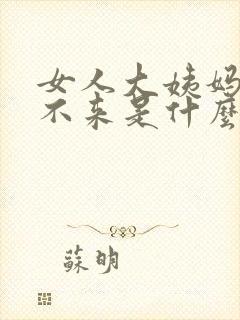 女人大姨妈
不来是什麼
蘇明